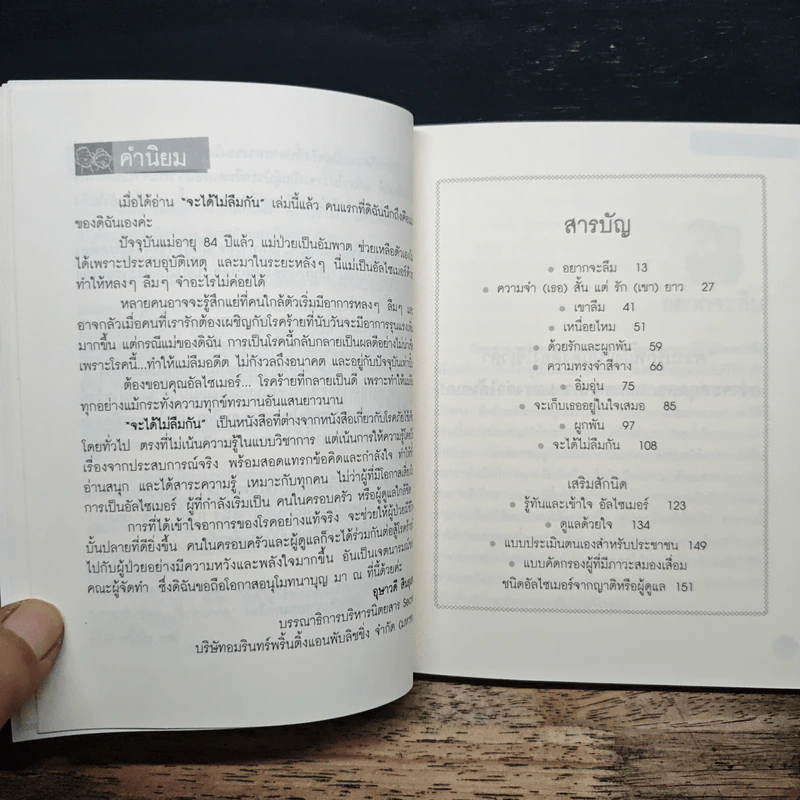 คำนิยม
เมื่อได้อ่าน "จะได้ไม่ลืมกัน" เล่มนี้แล้ว คนแรกที่ดิฉันนึกถึงคือ
ของดิฉันเองค่ะ
ปัจจุบันแม่อายุ 84 ปีแล้ว แม่ป่วยเป็นอัมพาต ช่วยเหลือตัวเอง
ได้เพราะประสบอุบัติเหตุ และมาในระยะหลังๆ นี่แม่เป็นอัลไซเมอร์
ทำให้หลงๆ ลืมๆ จำอะไรไม่ค่อยได้
หลายคนอาจจะรู้สึกแย่ที่คนใกล้ตัวเริ่มมีอาการหลงๆ ลืมๆ
อาจกลัวเมื่อคนที่เรารักต้องเผชิญกับโรคร้ายที่นับวันจะมีอาการรุนแรง
มากขึ้น แต่กรณีแม่ของดิฉัน การเป็นโรคนี้กลับกลายเป็นผลดีอย่างไม่น่า
เพราะโรคนี้...ทำให้แม่ลืมอดีต ไม่กังวลถึงอนาคต และอยู่กับปัจจุบัน
ต้องขอบคุณอัลไซเมอร์... โรคร้ายที่กลายเป็นดี เพราะทำให้แม่
ทุกอย่างแม้กระทั่งความทุกข์ทรมานอันแสนยาวนาน
"จะได้ไม่ลืมกัน" เป็นหนังสือที่ต่างจากหนังสือเกี่ยวกับโรคภัยไข้
โดยทั่วไป ตรงที่ไม่เน้นความรู้ในแบบวิชาการ แต่เน้นการให้ความรู้
เรื่องจากประสบการณ์จริง พร้อมสอดแทรกข้อคิดและกำลังใจ ทำให้
อ่านสนุก และได้สาระความรู้ เหมาะกับทุกคน ไม่ว่าผู้ที่มีโอกาสเสี่ยง
การเป็นอัลไซเมอร์ ผู้ที่กำลังเริ่มเป็น คนในครอบครัว หรือผู้ดูแลใกล้ชิด
การที่ได้เข้าใจอาการของโรคอย่างแท้จริง จะช่วยให้ผู้ป่วย
บั้นปลายที่ดียิ่งขึ้น คนในครอบครัวและผู้ดูแลก็จะได้ร่วมกันต่อสู้โรคร้าย
ไปกับผู้ป่วยอย่างมีความหวังและพลังใจมากขึ้น อันเป็นเจตนารมณ์
คณะผู้จัดทำ ซึ่งดิฉันขอถือโอกาสอนุโมทนาบุญ มา ณ ที่นี้ด้วยค่ะ
อุษาวดี
บรรณาธิการบริหารนิตยสาร Secret
บริษัทอมรินทร์พริ้นติ้งแอนด์พับลิชชิ่ง จำกัด
สารบัญ
• อยากจะลืม 13
• ความจำ (เธอ) สั้น แต่ รัก (เขา) ยาว 27
• เขาลืม 41
• เหนื่อยไหม 51
• ด้วยรักและผูกพัน 59
• ความทรงจำสีจาง 66
• อิ่มอุ่น 75
• จะเก็บเธออยู่ในใจเสมอ 85
• ผูกพัน 97
• จะได้ไม่ลืมกัน 108
เสริมสักนิด
• รู้ทันและเข้าใจ อัลไซเมอร์ 123
• ดูแลด้วยใจ 134
• แบบประเมินตนเองสำหรับประชาชน 149
• แบบคัดกรองผู้ที่มีภาวะสมองเสื่อม
ชนิดอัลไซเมอร์จากญาติหรือผู้ดูแล 151